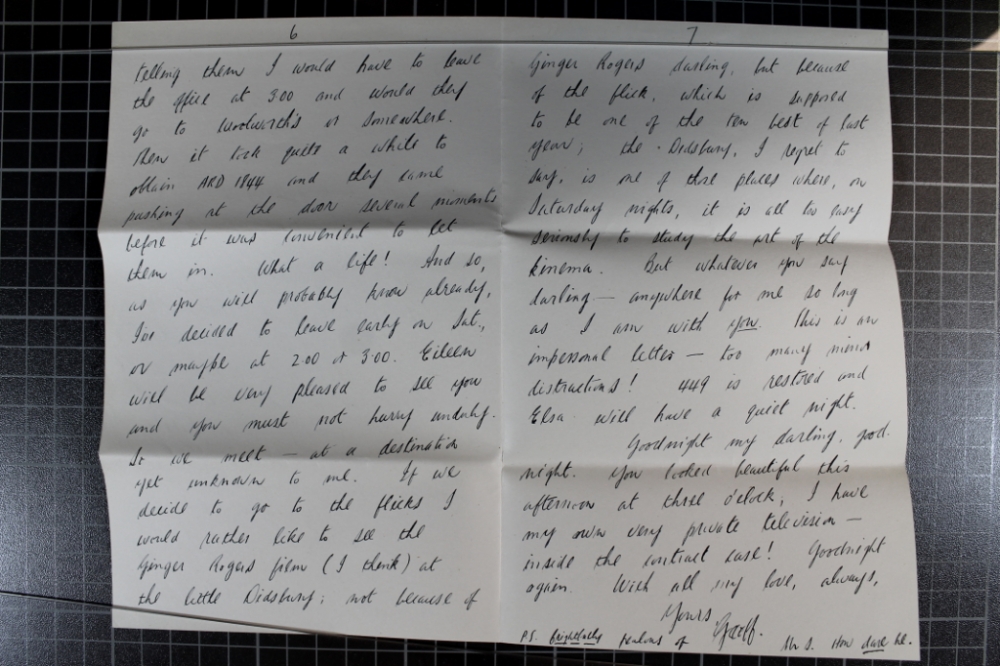 6
telling them I would have to leave
the office at 3.00 and would they
go to Woolworth's or somewhere.
Then it took quite a while to
obtain ARD 1844 and they came
pushing at the door several moments
before it was convenient to let
them in. What a life! And so,
as you will probably know already,
I've decided to leave early on Sat.,
or maybe at 2.00 or 3.00. Eileen
will be very pleased to see you
and you must not hurry unduly.
So we meet — at a destination
yet unknown to me. If we
decide to go to the flicks I
would rather like to see the
Ginger Rogers film (I think) at
the little Didsbury; not because of
7
Ginger Rogers darling, but because
of the flick, which is supposed
to be one of the ten best of last
year; the Didsbury, I regret to
say, is one of those places where, on
Saturday nights, it is all too easy
seriously to study the art of the
kinema. But whatever you say
darling — anywhere for me so long
as I am with you. This is an
impersonal letter — too many minor
distractions! 449 is restored and
Elsa will have a quiet night.
Goodnight my darling, good
night. You looked beautiful this
afternoon at three o'clock; I have
my own very private television —
inside the contract case! Goodnight
again. With all my love, always,
Yours
Geoff.
P.S. Frightfully jealous of Mr S. How dare he.